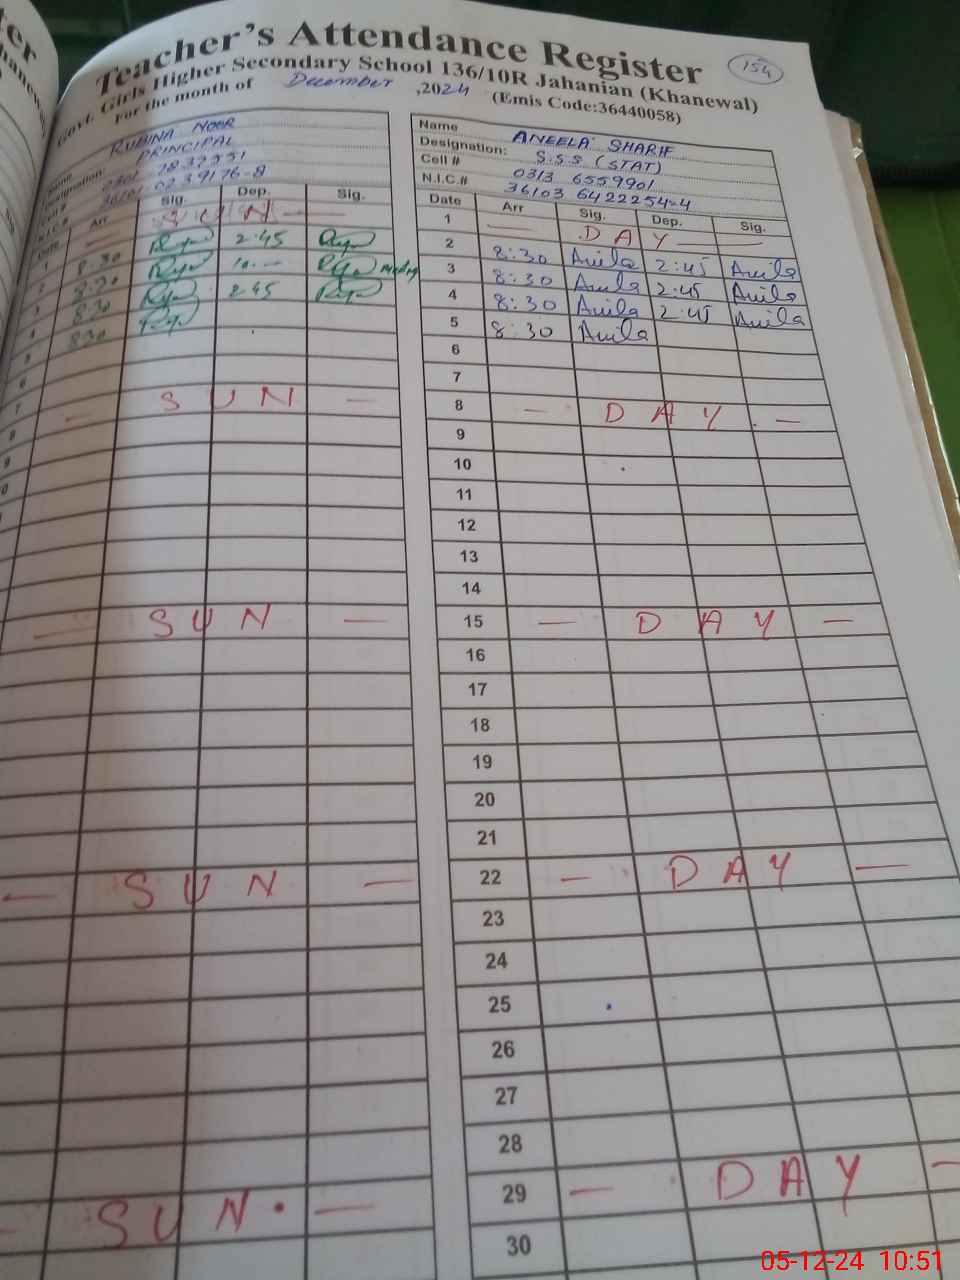 Teacher's Attendance Register
154
Govt. Girls Higher Secondary School 136/10R Jahanian (Khanewal)
For the month of December, 2024 (Emis Code:36440058)
Name RUBINA NOOR
Designation: PRINCIPAL
Cell #
N.I.C.#
Date Arr Sig. Dep. Sig.
1 — S U N —
2 8:30 2:45
3 8:30 10 —
4 8:30 2:45
5 8:30
6
7
8 — S U N —
9
— S U N —
— S U N —
— S U N —
Name ANEELA SHARIF
Designation: S.S.S (STAT)
Cell # 0313 6559901
N.I.C.# 36103 6422254-4
Date Arr Sig. Dep. Sig.
1 — D A Y —
2 8:30 Anila 2:45 Anila
3 8:30 Anila 2:45 Anila
4 8:30 Anila 2:45 Anila
5 8:30 Anila
6
7
8 — D A Y —
9
10
11
12
13
14
15 — D A Y —
16
17
18
19
20
21
22 — D A Y —
23
24
25
26
27
28
29 — D A Y —
30
05-12-24 10:51